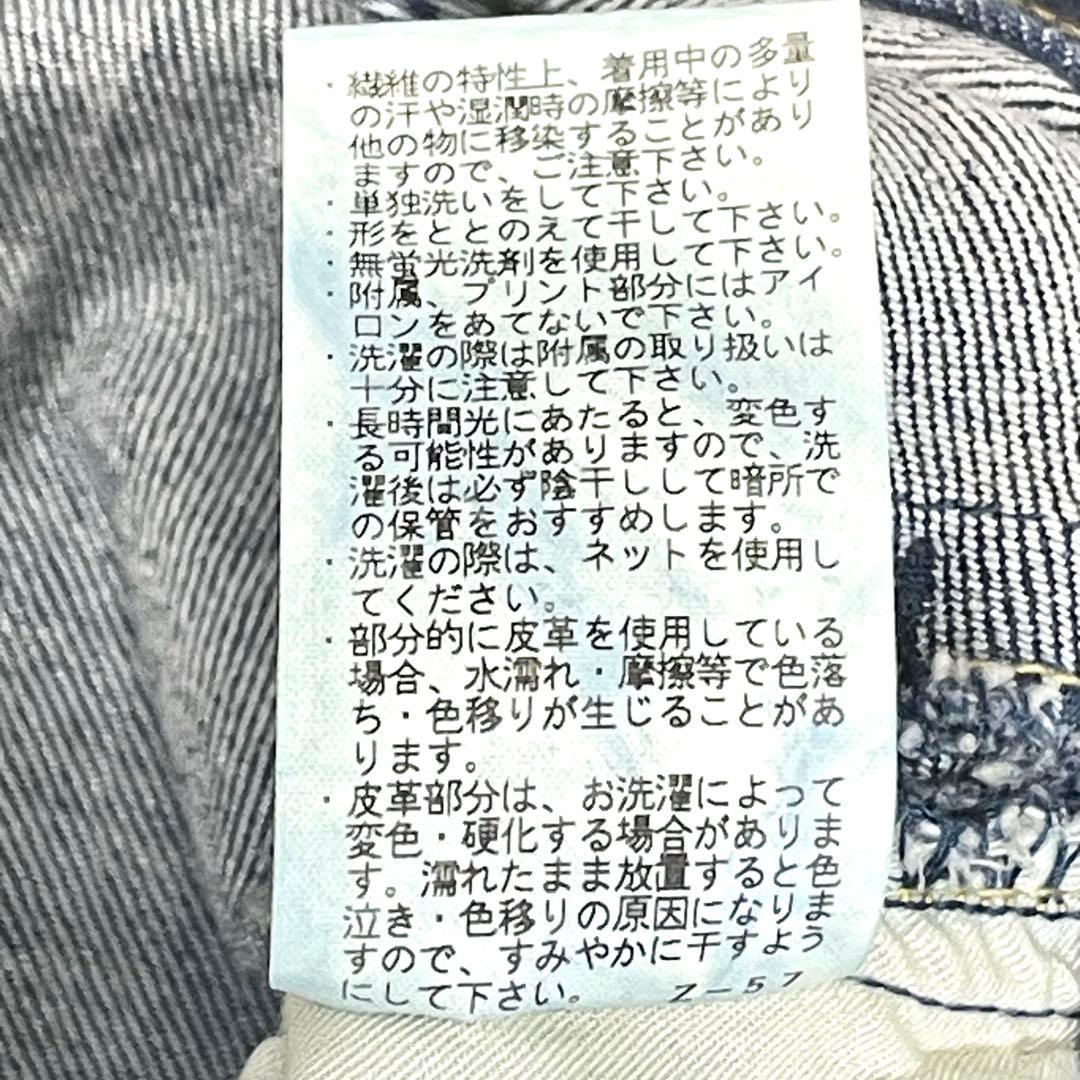 ・繊維の特性上、着用中の多量
の汗や湿潤時の摩擦等により
他の物に移染することがあり
ますので、ご注意下さい。
・単独洗いをして下さい。
・形をととのえて干して下さい。
・無蛍光洗剤を使用して下さい。
・附属、プリント部分にはアイ
ロンをあてないで下さい。
・洗濯の際は附属の取り扱いは
十分に注意して下さい。
・長時間光にあたると、変色す
る可能性がありますので、洗
濯後は必ず陰干しして暗所で
の保管をおすすめします。
・洗濯の際は、ネットを使用し
てください。
・部分的に皮革を使用している
場合、水濡れ・摩擦等で色落
ち・色移りが生じることがあ
ります。
・皮革部分は、お洗濯によって
変色・硬化する場合がありま
す。濡れたまま放置すると色
泣き・色移りの原因になりま
すので、すみやかに干すよう
にして下さい。 Z-57